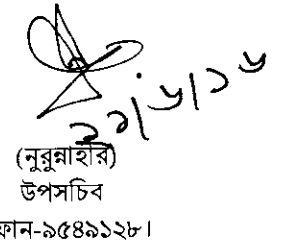 ২১/৬/১৬
(নুরুন্নাহার)
উপসচিব
ফোন-৯৫৪৯১২৮।